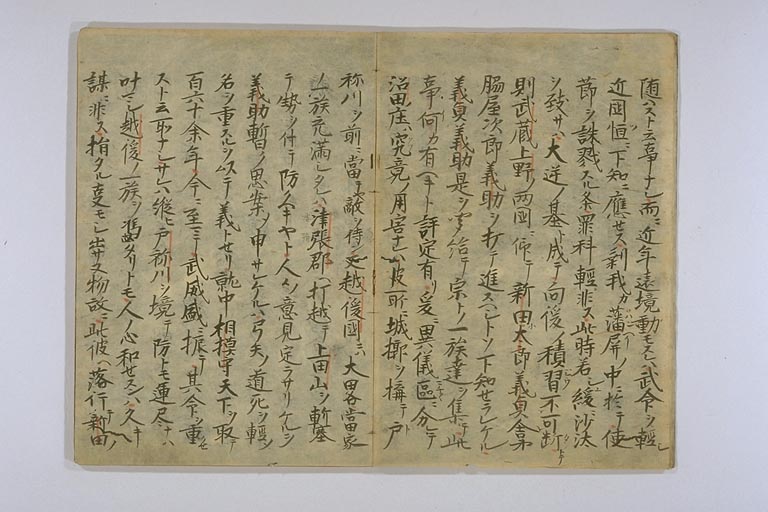 随ハスト云事ナシ而ニ近年遠境動モスレハ武命ヲ軽シ
近国恒ニ下知ニ應セス剰我カ藩屏ノ中ニ於テ使
節ヲ誅戮スル条罪科軽非ス此時若シ緩ニ沙汰
シ致サハ大逆ノ基ト成テ向後ノ積習不可断トテ
則武蔵上野ノ両国ニ仰テ新田太郎義貞舎弟
脇屋次郎義助ヲ打テ進スヘシトソ下知セラレケル
義貞義助是ヲ聞給テ宗トノ一族達ヲ集テ此
事何カ有ヘキト評定有リ爰ニ異儀區ニ分テ
沼田庄ハ究竟ノ用害ナレハ彼所ニ城槨ヲ構テ戸
祢川ヲ前ニ當テ敵ヲ待ン又越後国ニハ大略當家
ノ一族充満シタレハ津張郡ヘ打越テ上田山ヲ斬塞
テ勢ヲ付テ防クヘキヤト人々意見定ラサリケルヲ
義助暫ク思案シ申サレケルハ弓矢ノ道死ヲ軽シ
名ヲ重スルヲ以テ義トセリ就中相模守天下ヲ取テ
百六十余年今ニ至ニテ武威盛ニ振テ其命ヲ重セ
スト云所ナシサレハ縦ヒ戸祢川ヲ境テ防トモ運尽ナハ
叶マシ越後ノ一族ヲ馮タリトモ人ノ心和セスンハ久キ
謀ニ非ス指タル事モシ出サス物故ニ此彼ヘ落行テ新田